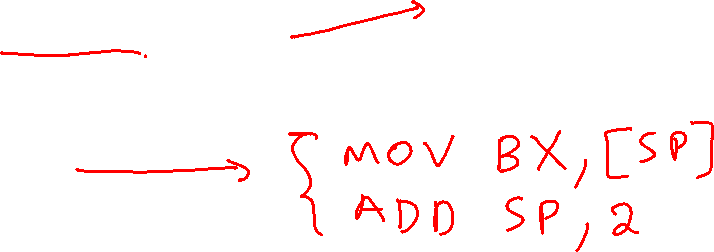 MOV BX, [SP]
ADD SP, 2